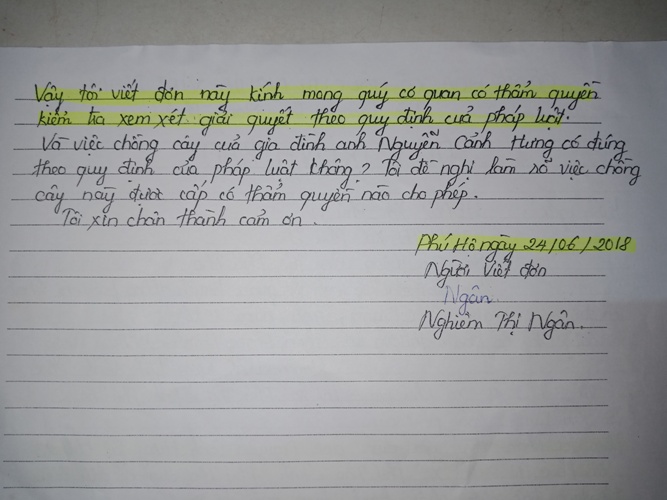 Vậy tôi viết đơn này kính mong quý cơ quan có thẩm quyền
kiểm tra xem xét giải quyết theo quy định cuả pháp luật.
Và việc chồng cây cuả gia đình anh Nguyễn Cảnh Hưng có đúng
theo quy định của pháp luật không? Tôi đề nghị làm rõ việc chồng
cây này được cấp có thẩm quyền nào cho phép.
Tôi xin chân thành cảm ơn.
Phú Hộ ngày 24/06/2018
Người viết đơn
Ngân
Nghiêm Thị Ngân.